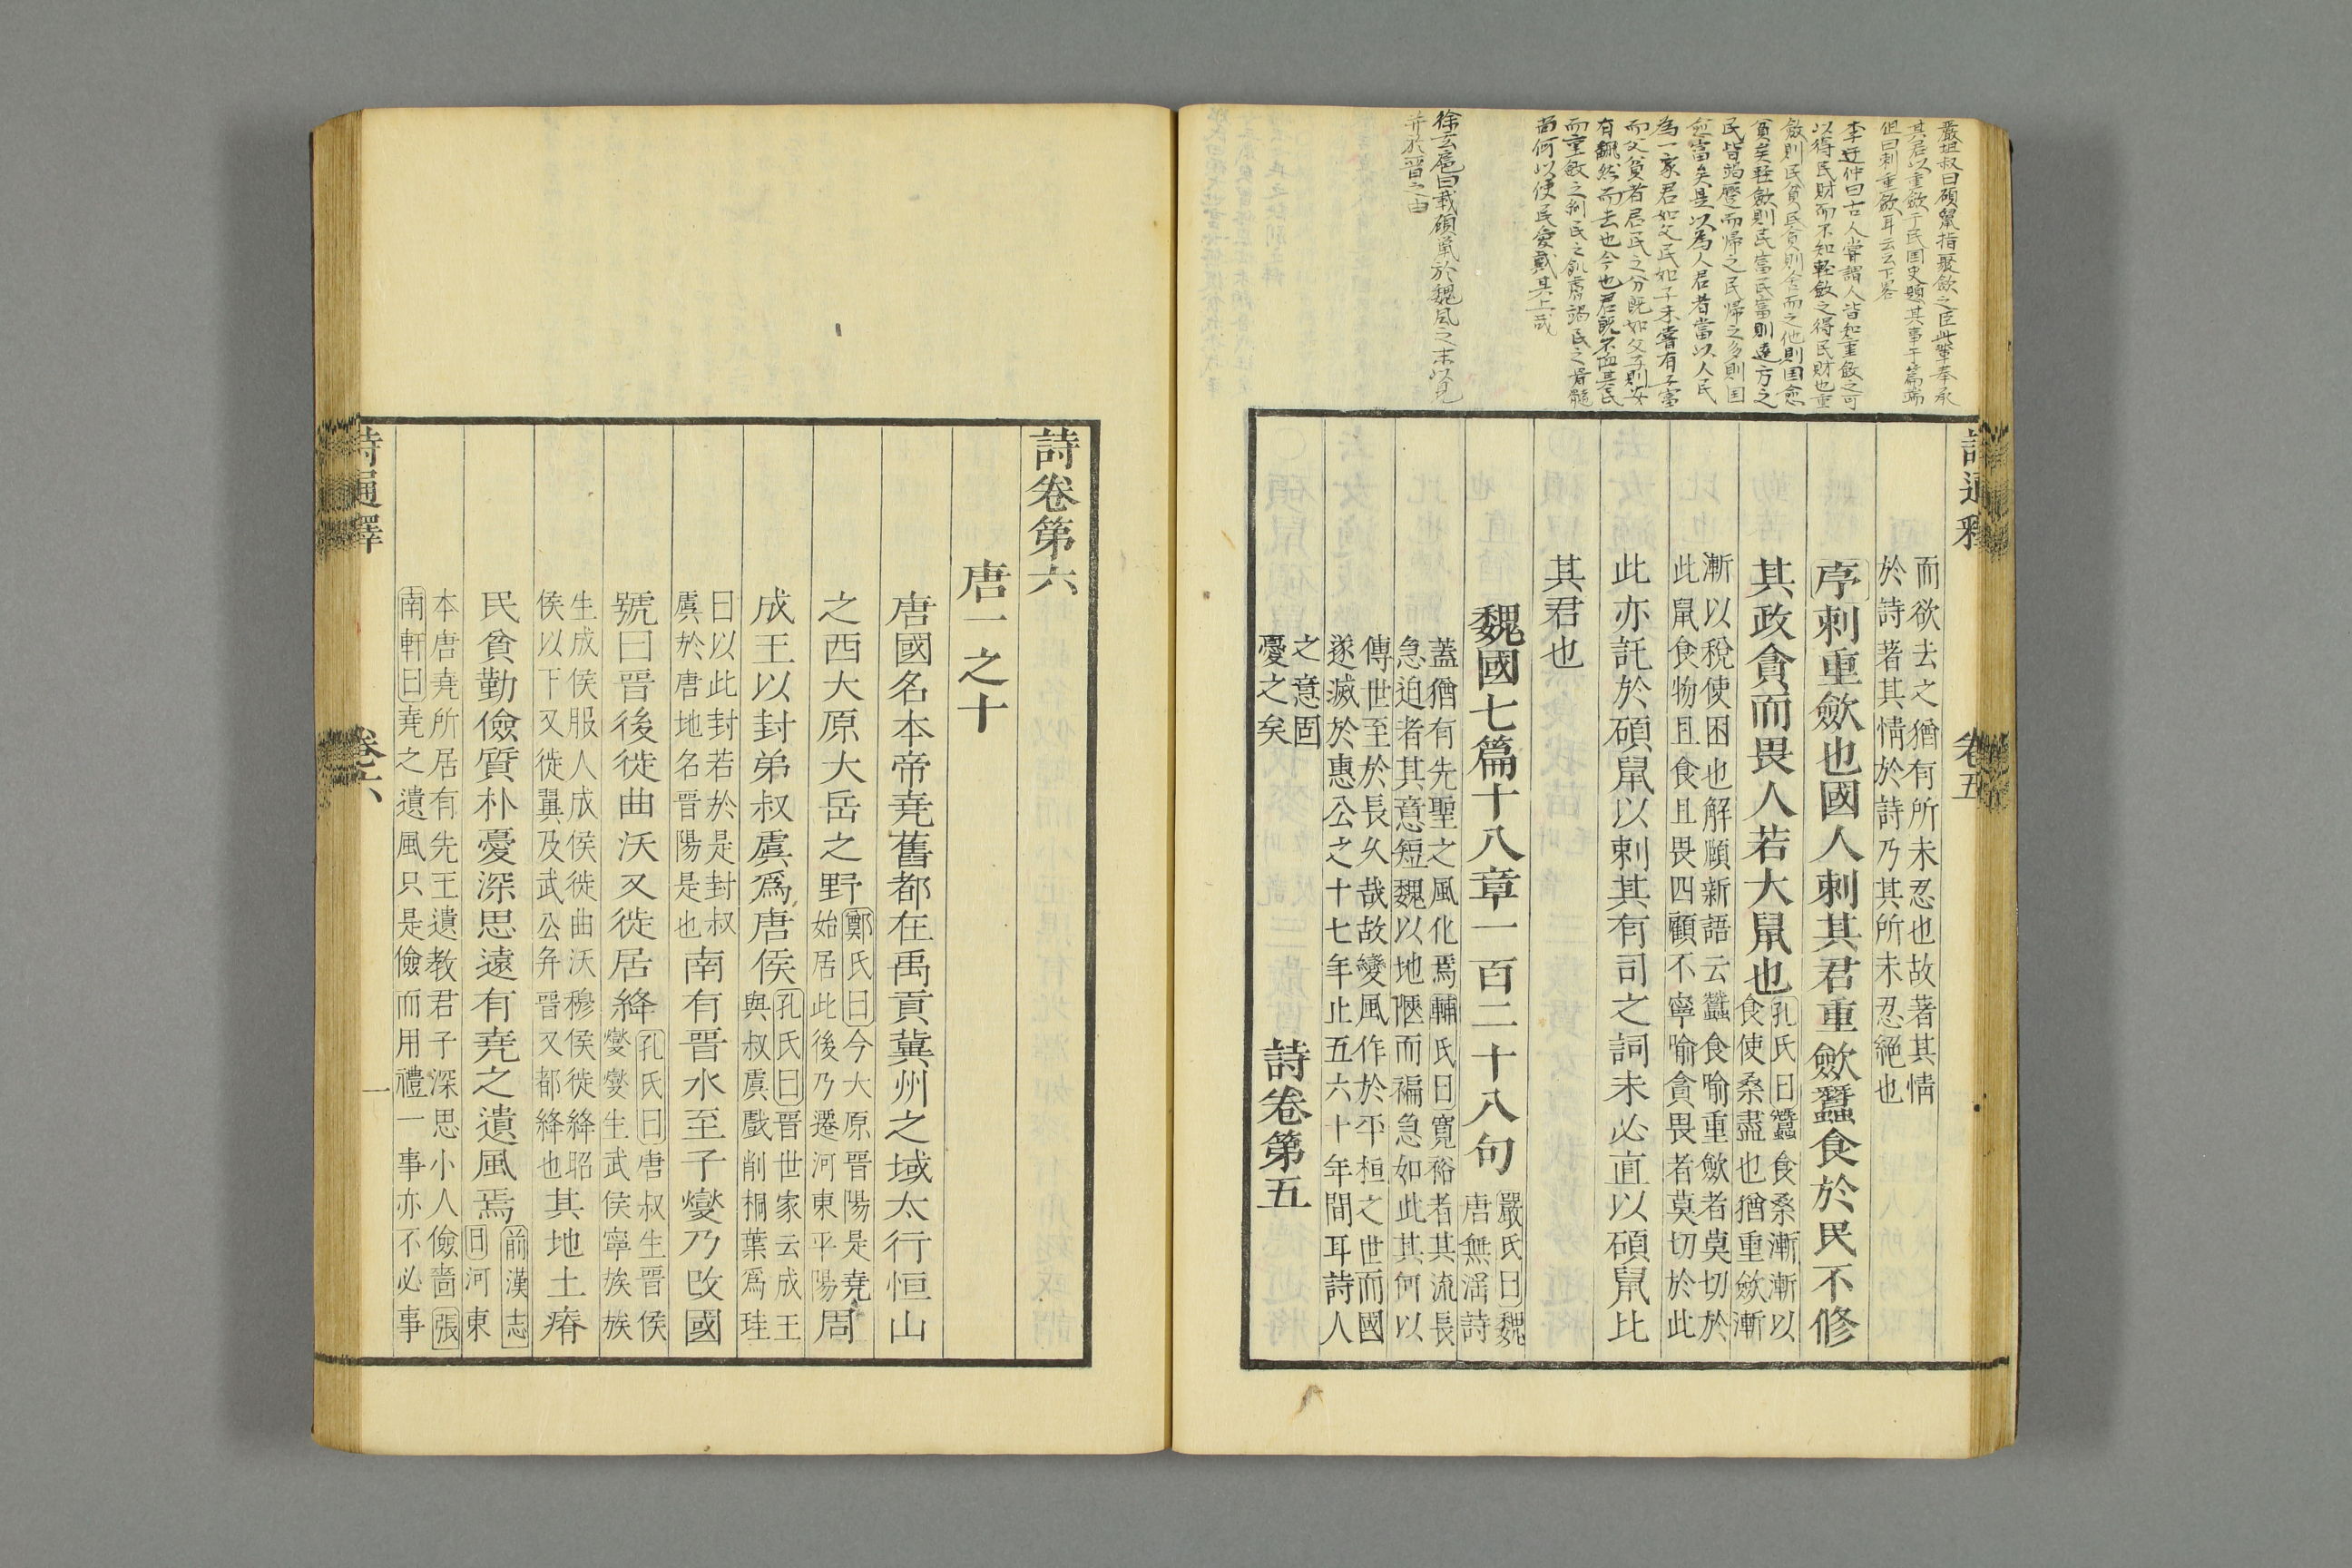 嚴坦叔曰碩鼠指聚斂之臣此輩奉承
其君以重斂于民国史題其事于篇端
但曰刺重斂耳云云下畧
李迂仲曰古人嘗謂人皆知重斂之可
以得民財而不知軽斂之得民財也重
斂則民貧民貧則舍而之他則国愈
貧矣軽斂則民富民富則遠方之
民皆竭蹷而帰之民帰之多則国
愈富矣是以為人君者當以人民
為一家君如父民如子未嘗有子富
而父貧者君民之分既如父子則安
有飄然而去也今也君既不恤其民
而重斂之剝民之肌膚竭民之骨髓
尚何以使民愛戴其上哉
徐玄扈曰載碩鼠於魏風之末以見
并於晋之由
詩通釋
卷五
而欲去之猶有所未忍也故著其情
於詩著其情於詩乃其所未忍絕也
序刺重斂也國人刺其君重斂蠶食於民不修
其政貪而畏人若大鼠也孔氏曰蠶食桑漸漸以
食使桑盡也猶重斂漸
漸以稅使困也解頤新語云蠶食喻重斂者莫切於
此鼠食物且食且畏四顧不寧喻貪畏者莫切於此
此亦託於碩鼠以刺其有司之詞未必直以碩鼠比
其君也
魏國七篇十八章一百二十八句嚴氏曰魏
唐無淫詩
蓋猶有先聖之風化焉輔氏曰寬裕者其流長
急迫者其意短魏以地陿而褊急如此其何以
傳世至於長久哉故變風作於平桓之世而國
遂滅於惠公之十七年止五六十年間耳詩人
之意固
憂之矣
詩卷第五
詩卷第六
唐一之十
唐國名本帝堯舊都在禹貢冀州之域太行恒山
之西大原大岳之野鄭氏曰今大原晉陽是堯
始居此後乃遷河東平陽
周
成王以封弟叔虞爲唐侯孔氏曰晉世家云成王
與叔虞戲削桐葉爲珪
曰以此封若於是封叔
虞於唐地名晉陽是也
南有晉水至子燮乃改國
號曰晉後徙曲沃又徙居絳孔氏曰唐叔生晉侯
燮燮生武侯寧族族
生成侯服人成侯徙曲沃穆侯徙絳昭
侯以下又徙翼及武公弁晉又都絳也
其地土瘠
民貧勤儉質朴憂深思遠有堯之遺風焉前漢志
曰河東
本唐堯所居有先王遺教君子深思小人儉嗇張
南軒曰堯之遺風只是儉而用禮一事亦不必事
詩通釋
卷六
一